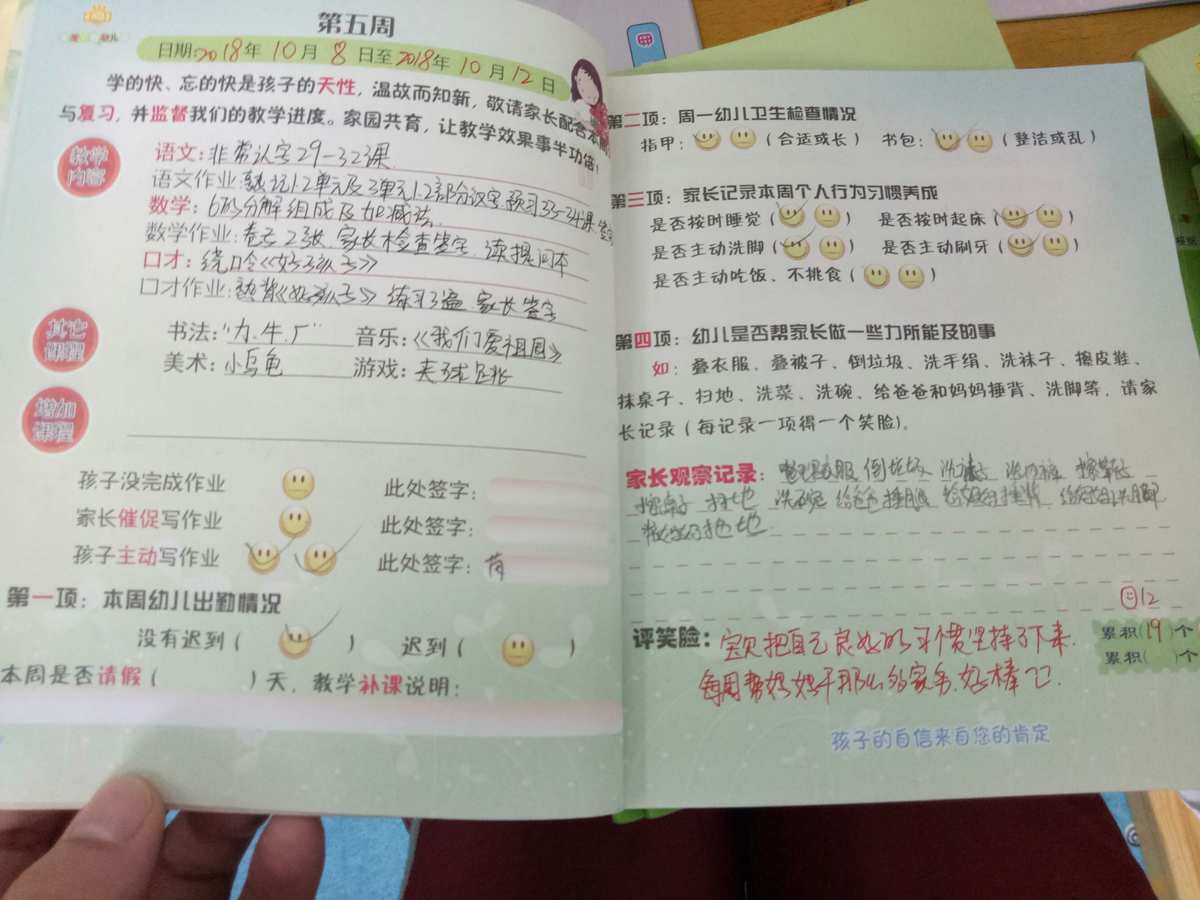 第五周
日期:2018年10月8日至2018年10月12日
学的快、忘的快是孩子的天性，温故而知新，敬请家长配合本
与复习，并监督我们的教学进度。家园共育，让教学效果事半功倍！
教学
内容
语文：非常认字29-32课
语文作业：12单元及3单元12部分汉字 预习33-34课
数学：6的分解组成及加减法
数学作业：卷子2张 家长检查签字 读提问本
口才：绕口令《好孩子》
口才作业：熟背《》练习3遍 家长签字
其它
课程
书法："力.牛.厂" 音乐：《我们爱祖国》
美术：小乌龟 游戏：夹球
增加
课程
孩子没完成作业 此处签字：
家长催促写作业 此处签字：
孩子主动写作业 此处签字：
第一项：本周幼儿出勤情况
没有迟到（ ） 迟到（ ）
本周是否请假（ ）天，教学补课说明：
第二项：周一幼儿卫生检查情况
指甲：（合适或长） 书包：（整洁或乱）
第三项：家长记录本周个人行为习惯养成
是否按时睡觉（ ） 是否按时起床（ ）
是否主动洗脚（ ） 是否主动刷牙（ ）
是否主动吃饭、不挑食（ ）
第四项：幼儿是否帮家长做一些力所能及的事
如：叠衣服、叠被子、倒垃圾、洗手绢、洗袜子、擦皮鞋、
抹桌子、扫地、洗菜、洗碗、给爸爸和妈妈捶背、洗脚等，请家
长记录（每记录一项得一个笑脸）。
家长观察记录：衣服 倒垃圾
扫地 洗碗 给爸爸捶腿
地
12
评笑脸：宝贝把自己良好的习惯坚持了下来.
每周帮妈妈干那么多的家务.好棒
累积（19）个
累积（ ）个
孩子的自信来自您的肯定